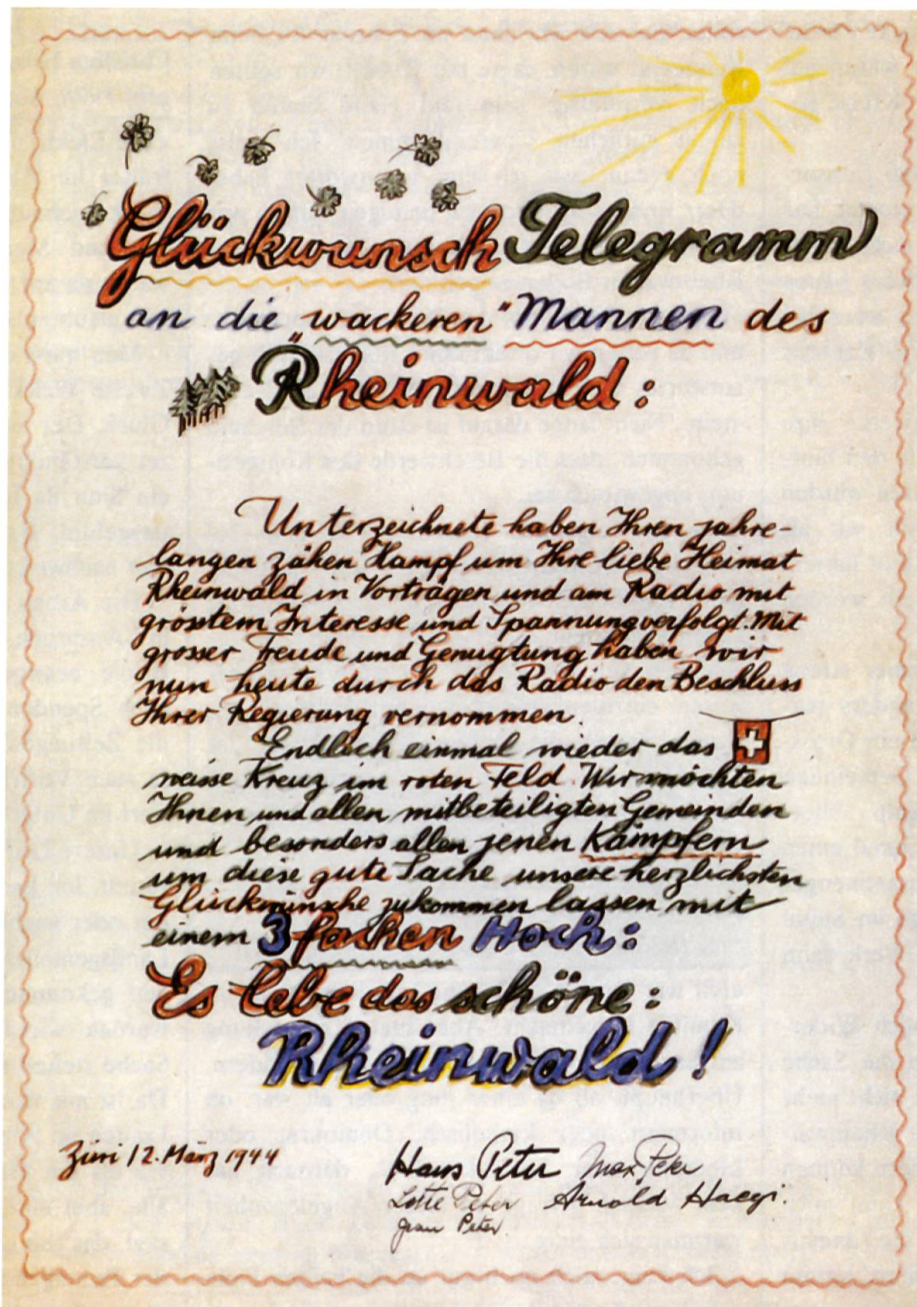 Glückwunsch Telegramm
an die "wackeren" Mannen des
Rheinwald:
Unterzeichnete haben Ihren jahre-
langen zähen Kampf um Ihre liebe Heimat
Rheinwald in Vorträgen und am Radio mit
grösstem Interesse und Spannung verfolgt. Mit
grosser Freude und Genugtung haben wir
nun heute durch das Radio den Beschluss
Ihrer Regierung vernommen.
Endlich einmal wieder das
weisse Kreuz im roten Feld. Wir möchten
Ihnen und allen mitbeteiligten Gemeinden
und besonders allen jenen Kämpfern
um diese gute Sache unsere herzlichsten
Glückwünsche zukommen lassen mit
einem 3 fachen Hoch:
Es lebe das schöne:
Rheinwald!
12. März 1944
Hans Peter Max Peter
Lotte Peter Arnold Haegi.
Peter